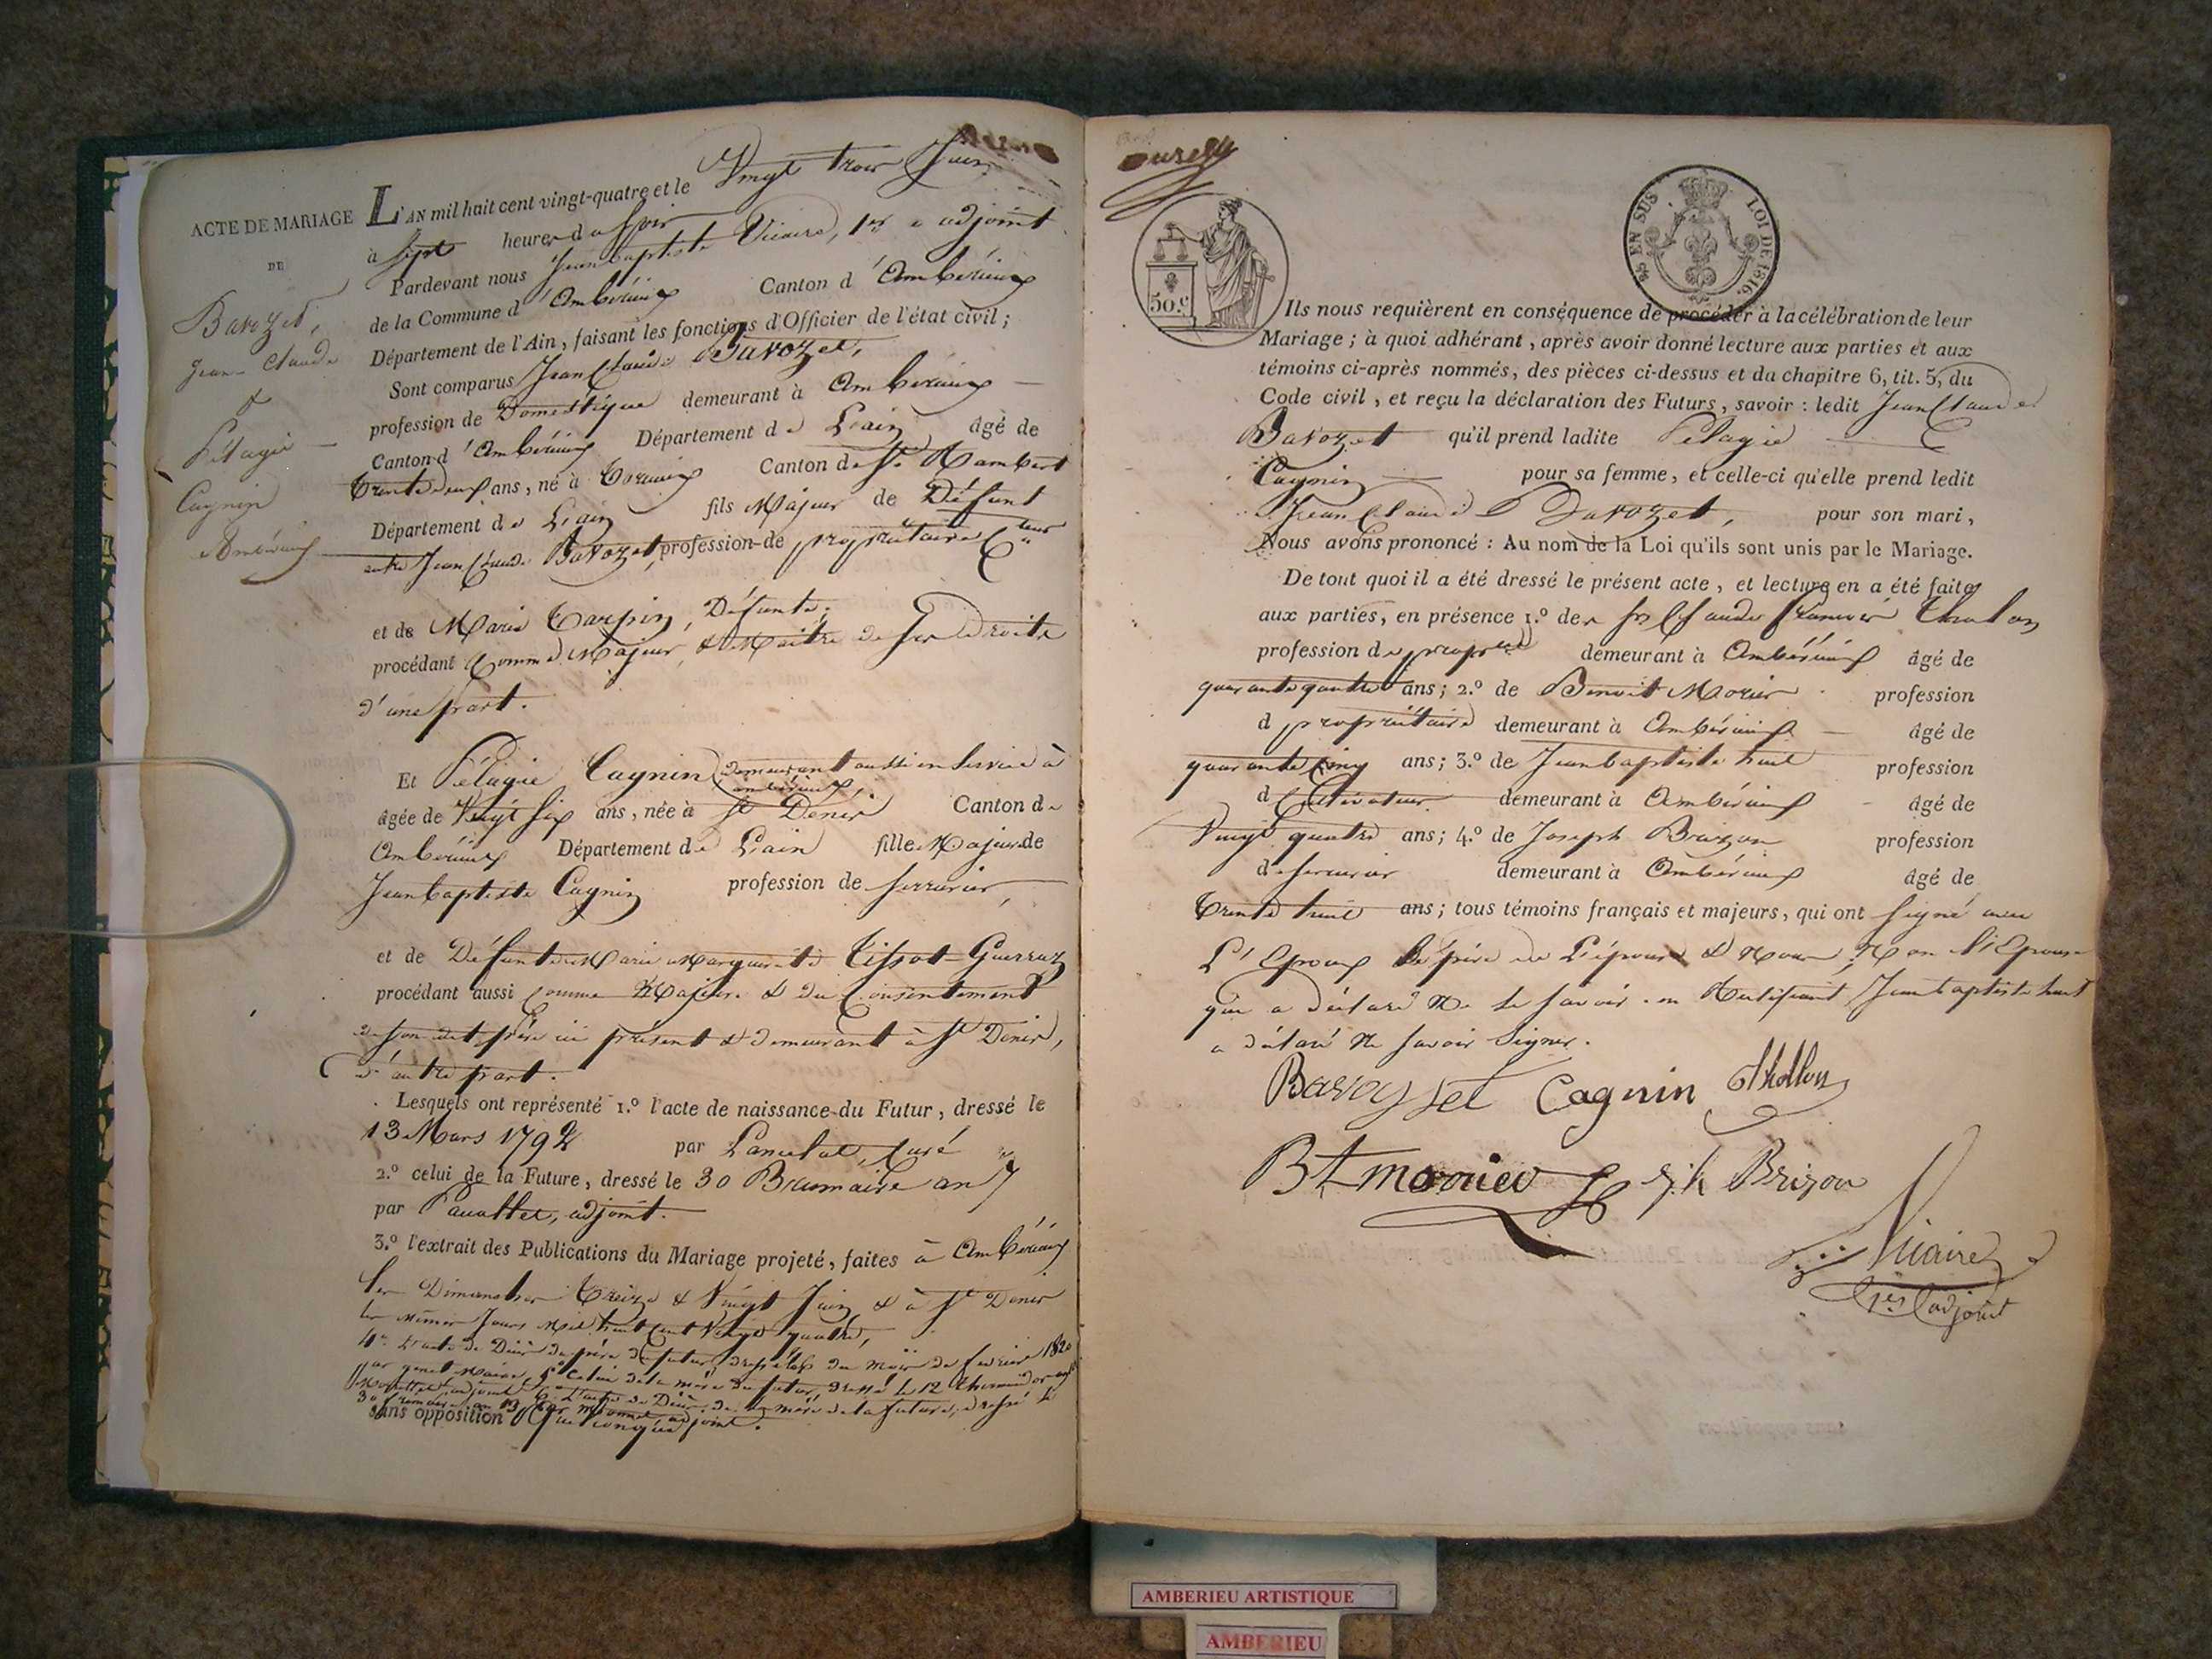 ACTE DE MARIAGE
DE
Bavozet,
Jean-Claude
&
Pélagie
Cagnin
Ambérieux
L'AN mil huit cent vingt-quatre et le Vingt trois Juin
à Sept heures du Soir
Pardevant nous Jean baptiste Vicaire, 1er adjoint
de la Commune d'Ambérieux Canton d'Ambérieux
Département de l'Ain, faisant les fonctions d'Officier de l'état civil;
Sont comparus Jean Claude Bavozet,
profession de Domestique demeurant à Ambérieux
Canton d'Ambérieux Département de L'ain âgé de
trente deux ans, né à Canton de St Rambert
Département de L'ain fils Majeur de Défunt
autre Jean Claude Bavozet, profession de propriétaire Cteur
et de Marie Carpin, Défunte;
procédant Comme Majeur & Maître de ses droits
d'une part.
Et Pélagie Cagnin demeurant aussi en service à
ambérieux.
âgée de Vingt Six ans, née à St Denis Canton de
Ambérieux Département de L'ain fille Majeure de
Jean baptiste Cagnin profession de serrurier,
et de Défunte Marie Marguerite Tissot-Guerraz
procédant aussi comme Majeure & du Consentement
de son dit père ici présent & demeurant à St Denis,
d'autre part.
Lesquels ont représenté 1.º l'acte de naissance du Futur, dressé le
13 Mars 1792 par Lancelot, curé
2.º celui de la Future, dressé le 30 Brumaire an 7
par adjoint.
3.º l'extrait des Publications du Mariage projeté, faites à Ambérieux
les Dimanches Treize & Vingt Juin & à St Denis
les mêmes Jours Mil huit Cent Vingt quatre,
4º L'acte de Décès du père du futur, dressé le du mois de février 1820
par genet Maire, 5º Celui de la mère du futur, dressé le 12 thermidor
adjoint 6º L'acte de Décès de la mère de la future, dressé le
3 frimaire an 13 par adjoint.
sans opposition quelconque
50.c
EN SUS
LOI DE 1816.
Ils nous requièrent en conséquence de procéder à la célébration de leur
Mariage; à quoi adhérant, après avoir donné lecture aux parties et aux
témoins ci-après nommés, des pièces ci-dessus et du chapitre 6, tit. 5, du
Code civil, et reçu la déclaration des Futurs, savoir: ledit Jean Claude
Bavozet qu'il prend ladite Pélagie
Cagnin pour sa femme, et celle-ci qu'elle prend ledit
Jean Claude Bavozet, pour son mari,
Nous avons prononcé: Au nom de la Loi qu'ils sont unis par le Mariage.
De tout quoi il a été dressé le présent acte, et lecture en a été faite
aux parties, en présence 1.º de sr Claude
profession de propre demeurant à Ambérieux âgé de
quarante quatre ans; 2.º de Benoit Morier profession
d propriétaire demeurant à Ambérieux âgé de
quarante Cinq ans; 3.º de Jean baptiste huit profession
d Cultivateur demeurant à Ambérieux âgé de
Vingt quatre ans; 4.º de Joseph Brizon profession
de serrurier demeurant à Ambérieux âgé de
trente huit ans; tous témoins français et majeurs, qui ont signé avec
L'Epoux le père de L'épouse & Nous, Non l'Epouse
qui a déclaré Ne le savoir. en Rectifiant Jean baptiste huit
a déclaré Ne savoir Signer.
Bavoyzet Cagnin Thollon
Bt morrier Jh Brizon
Vicaire
1er adjoint
AMBERIEU ARTISTIQUE
AMBERIEU